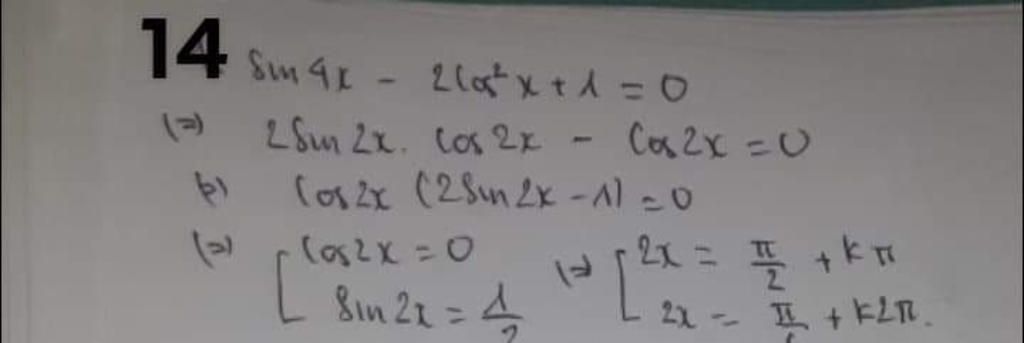 14 sin 4x - 2cos² x + 1 = 0
(=) 2 sin 2x. cos 2x - cos 2x = 0
(=) cos 2x (2 sin 2x - 1) = 0
(=) [ cos 2x = 0 (=) [ 2x = π/2 + kπ
sin 2x = 1/2 2x = π/ + k2π.